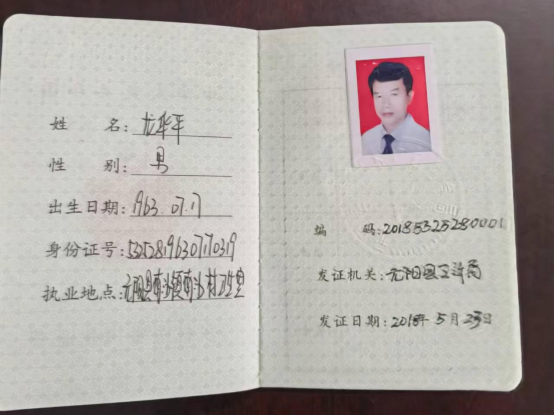 姓 名:龙华平
性 别:男
出生日期:1963.07.17
身份证号:532528196307170319
执业地点:元阳县南沙镇南沙村卫生室
编 码:20185325280001
发证机关:元阳县卫计局
发证日期:2018年5月23日